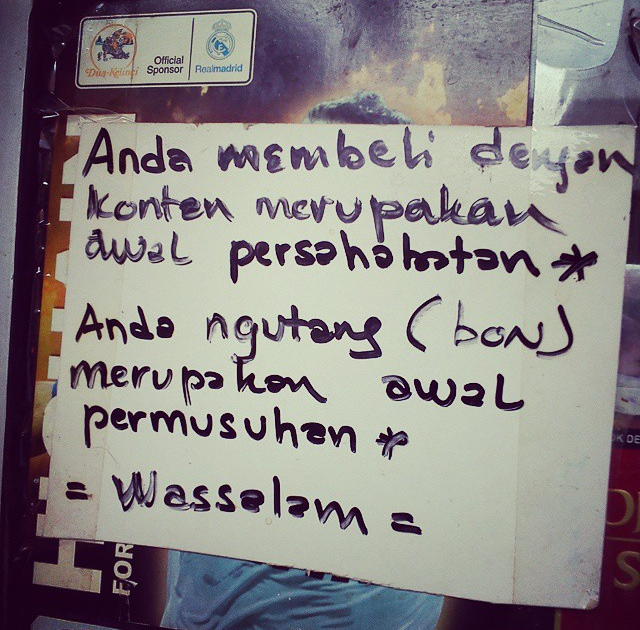 Dua Kelinci
Official
Sponsor
Realmadrid
Anda membeli dengan
konten merupakan
awal persahabatan *
Anda ngutang (bon)
merupakan awal
permusuhan *
= Wassalam =
FOR